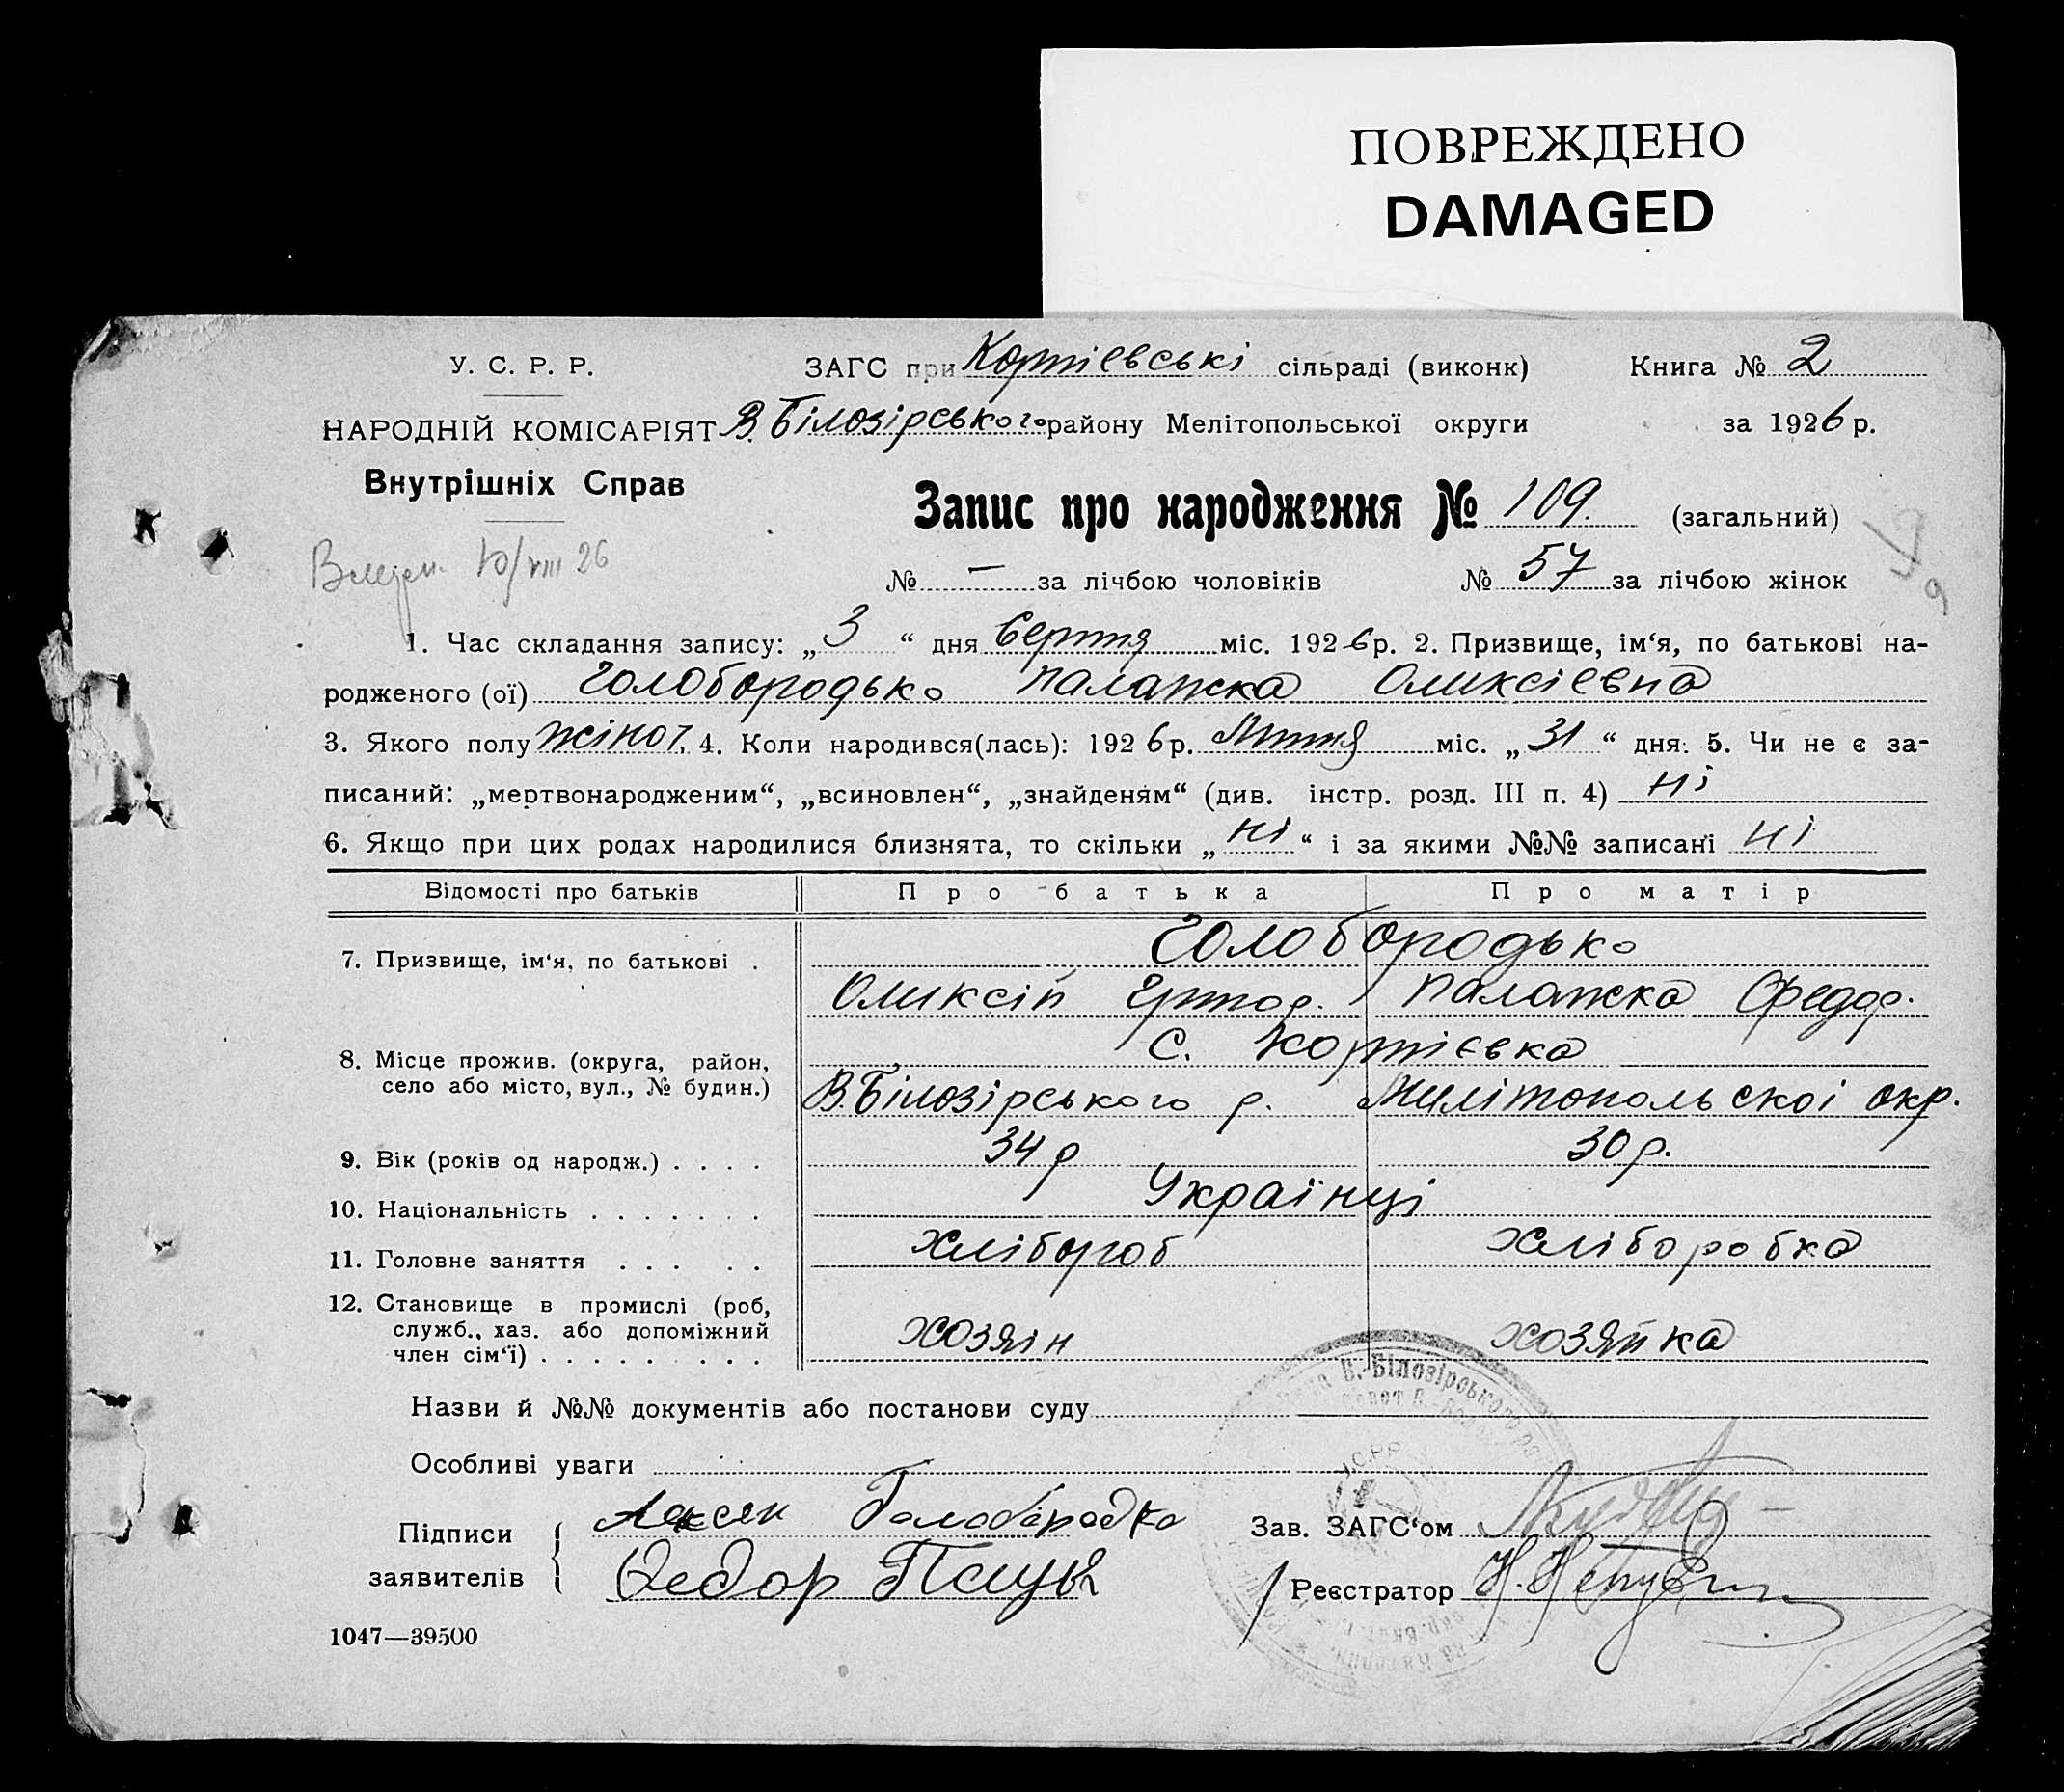 ПОВРЕЖДЕНО
DAMAGED
У. С. Р. Р. ЗАГС при сільраді (виконк) Книга № 2
НАРОДНІЙ КОМІСАРІЯТ В. Білозірського району Мелітопольської округи за 1926 р.
Внутрішніх Справ
Запис про народження № 109. (загальний)
10/VIII 26
№ — за лічбою чоловіків № 57 за лічбою жінок
1. Час складання запису: „ 3 “ дня Серпня міс. 1926 р. 2. Призвище, ім‘я, по батькові на-
родженого (ої) Голобородько Палажка Оликсіевна
3. Якого полу жіноч. 4. Коли народився(лась): 1926 р. Липня міс. „ 31 “ дня. 5. Чи не є за-
писаний: „мертвонародженим“, „всиновлен“, „знайденям“ (див. інстр. розд. III п. 4) ні
6. Якщо при цих родах народилися близнята, то скільки „ ні “ і за якими №№ записані ні
Відомості про батьків Про батька Про матір
7. Призвище, ім‘я, по батькові . Голобородько
Оликсій Палажка Федор.
8. Місце прожив. (округа, район, село або місто, вул., № будин.) С.
В. Білозірського р. Милітопольскоі окр.
9. Вік (років од народж.) . . . . 34 р 30 р.
10. Національність . . . . . . . Українці
11. Головне заняття . . . . . хлібороб хліборобка
12. Становище в промислі (роб,
служб., хаз. або допоміжний
член сім‘ї) . . . . . . . . . хозяін хозяйка
Назви й №№ документів або постанови суду
Особливі уваги
В.-Білозірського
Підписи
заявителів
Голобородко
Федор
Зав. ЗАГС‘ом
Реєстратор
1047—39500